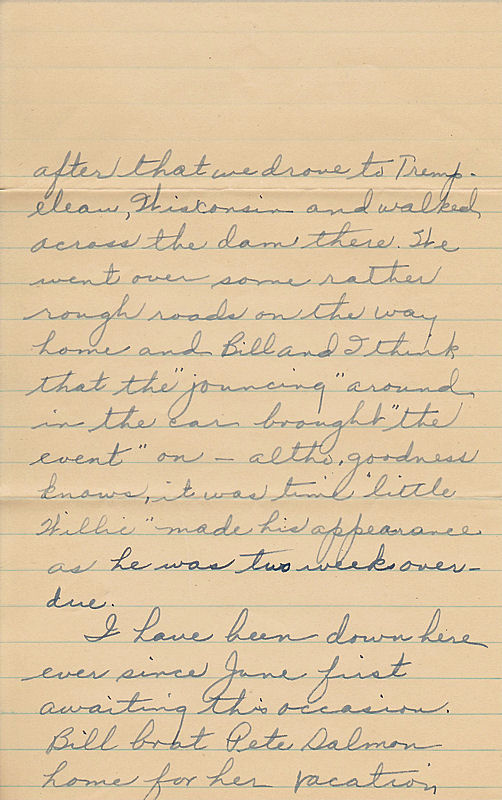 after that we drove to Tremp-
eleau, Wisconsin and walked
across the dam there. We
went over some rather
rough roads on the way
home and Bill and I think
that the "jouncing" around
in the car brought "the
event" on - altho, goodness
knows, it was time "little
Willie" made his appearance
as he was two weeks over-
due.
I have been down here
ever since June first
awaiting this occasion.
Bill brot Pete Salmon
home for her vacation